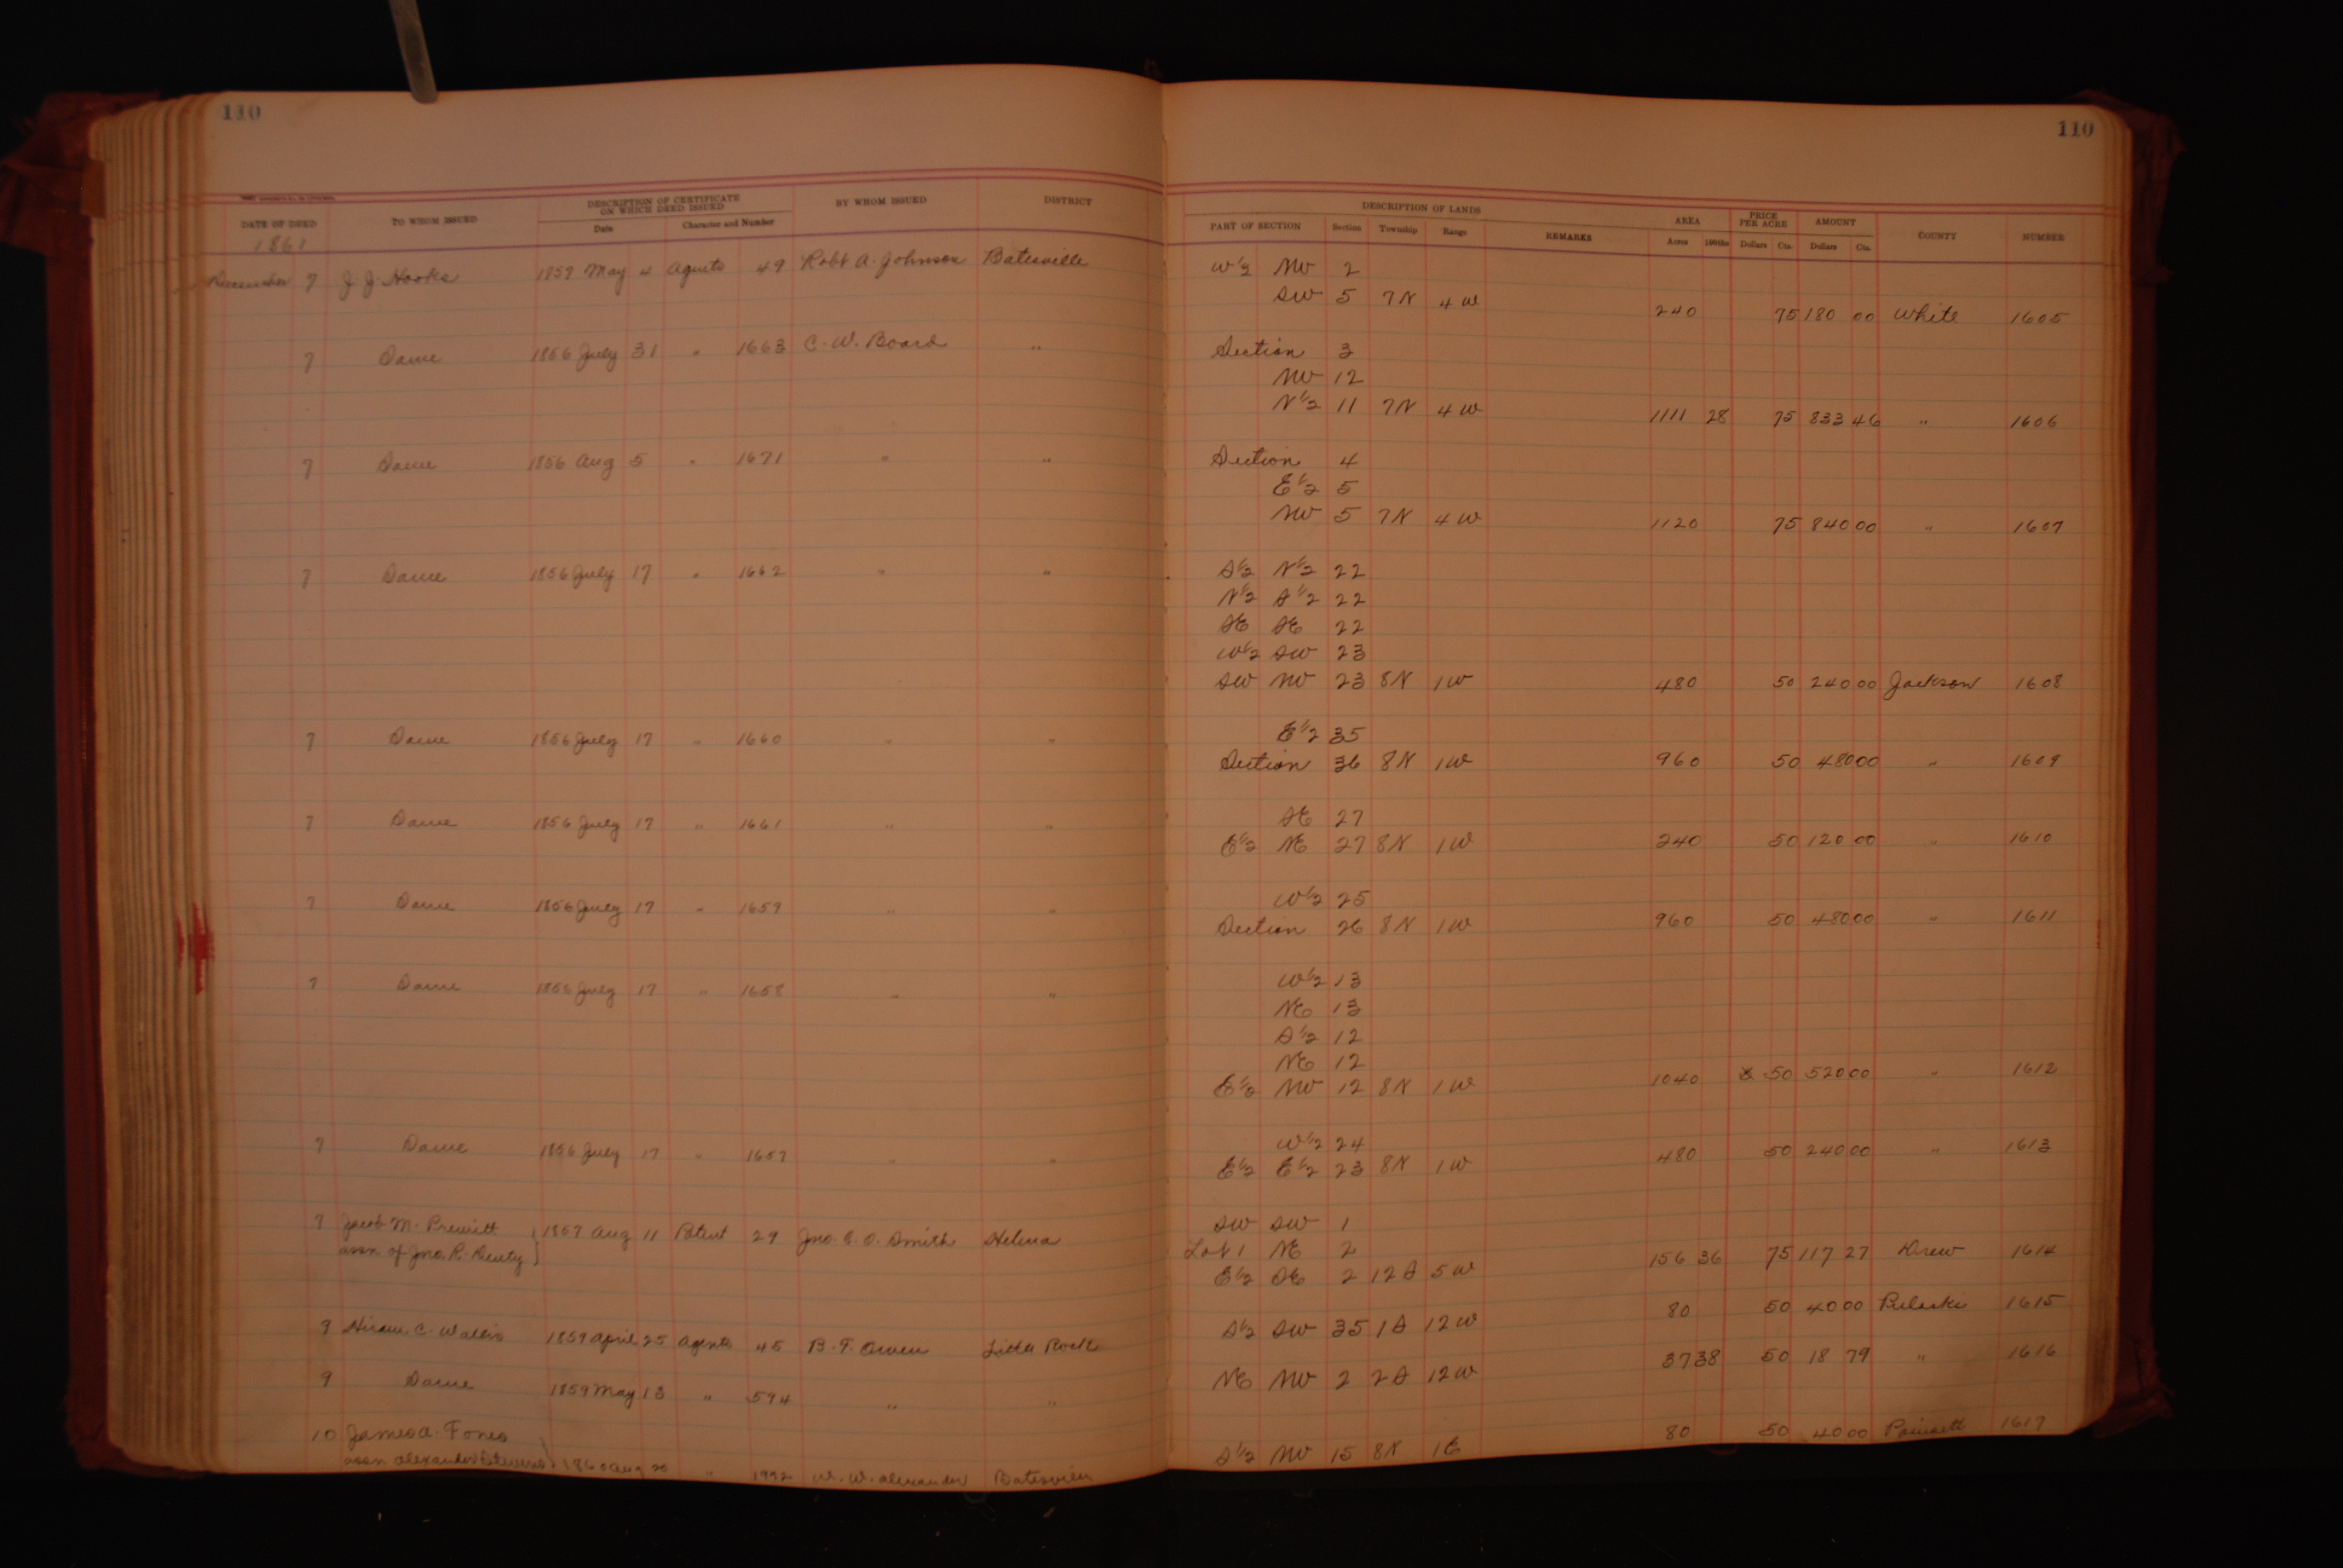 110 110
DATE OF DEED TO WHOM ISSUED DESCRIPTION OF CERTIFICATE ON WHICH DEED ISSUED Date Character and Number BY WHOM ISSUED DISTRICT DESCRIPTION OF LANDS PART OF SECTION Section Township Range REMARKS AREA Acres 100ths PRICE PER ACRE Dollars Cts. AMOUNT Dollars Cts. COUNTY NUMBER
1861
December 7 J. J. Hooks 1859 May 4 Agents 49 Robt A. Johnson Batesville W½ NW 2
SW 5 7N 4W 240 75 180 00 White 1605
7 Same 1856 July 31 " 1663 C. W. Board " Section 3
NW 12
N½ 11 7N 4W 1111 28 75 833 46 " 1606
7 Same 1856 Aug 5 " 1671 " " Section 4
E½ 5
NW 5 7N 4W 1120 75 840 00 " 1607
7 Same 1856 July 17 " 1662 " " S½ N½ 22
N½ S½ 22
SE SE 22
W½ SW 23
SW NW 23 8N 1W 480 50 240 00 Jackson 1608
7 Same 1856 July 17 " 1660 " " E½ 35
Section 36 8N 1W 960 50 480 00 " 1609
7 Same 1856 July 17 " 1661 " " SE 27
E½ NE 27 8N 1W 240 50 120 00 " 1610
7 Same 1856 July 17 " 1659 " " W½ 25
Section 26 8N 1W 960 50 480 00 " 1611
7 Same 1856 July 17 " 1658 " " W½ 13
NE 13
S½ 12
NE 12
E½ NW 12 8N 1W 1040 50 520 00 " 1612
7 Same 1856 July 17 " 1657 " " W½ 24
E½ E½ 23 8N 1W 480 50 240 00 " 1613
7 Jacob M. Prewitt 1857 Aug 11 Patent 29 Jno. C. O. Smith Helena SW SW 1
assn of Jno. R. Lot 1 NE 2
E½ SE 2 12S 5W 156 36 75 117 27 Drew 1614
9 Hiram C. Wallis 1859 April 25 Agents 45 B. F. Owen Little Rock S½ SW 35 1S 12W 80 50 40 00 Pulaski 1615
9 Same 1859 May 13 " 594 " " NE NW 2 2S 12W 37 38 50 18 79 " 1616
10 James A. Fones
assn Alexander 1860 Aug 20 " 1992 W. W. Alexander Batesville S½ NW 15 8N 1E 80 50 40 00 Poinsett 1617